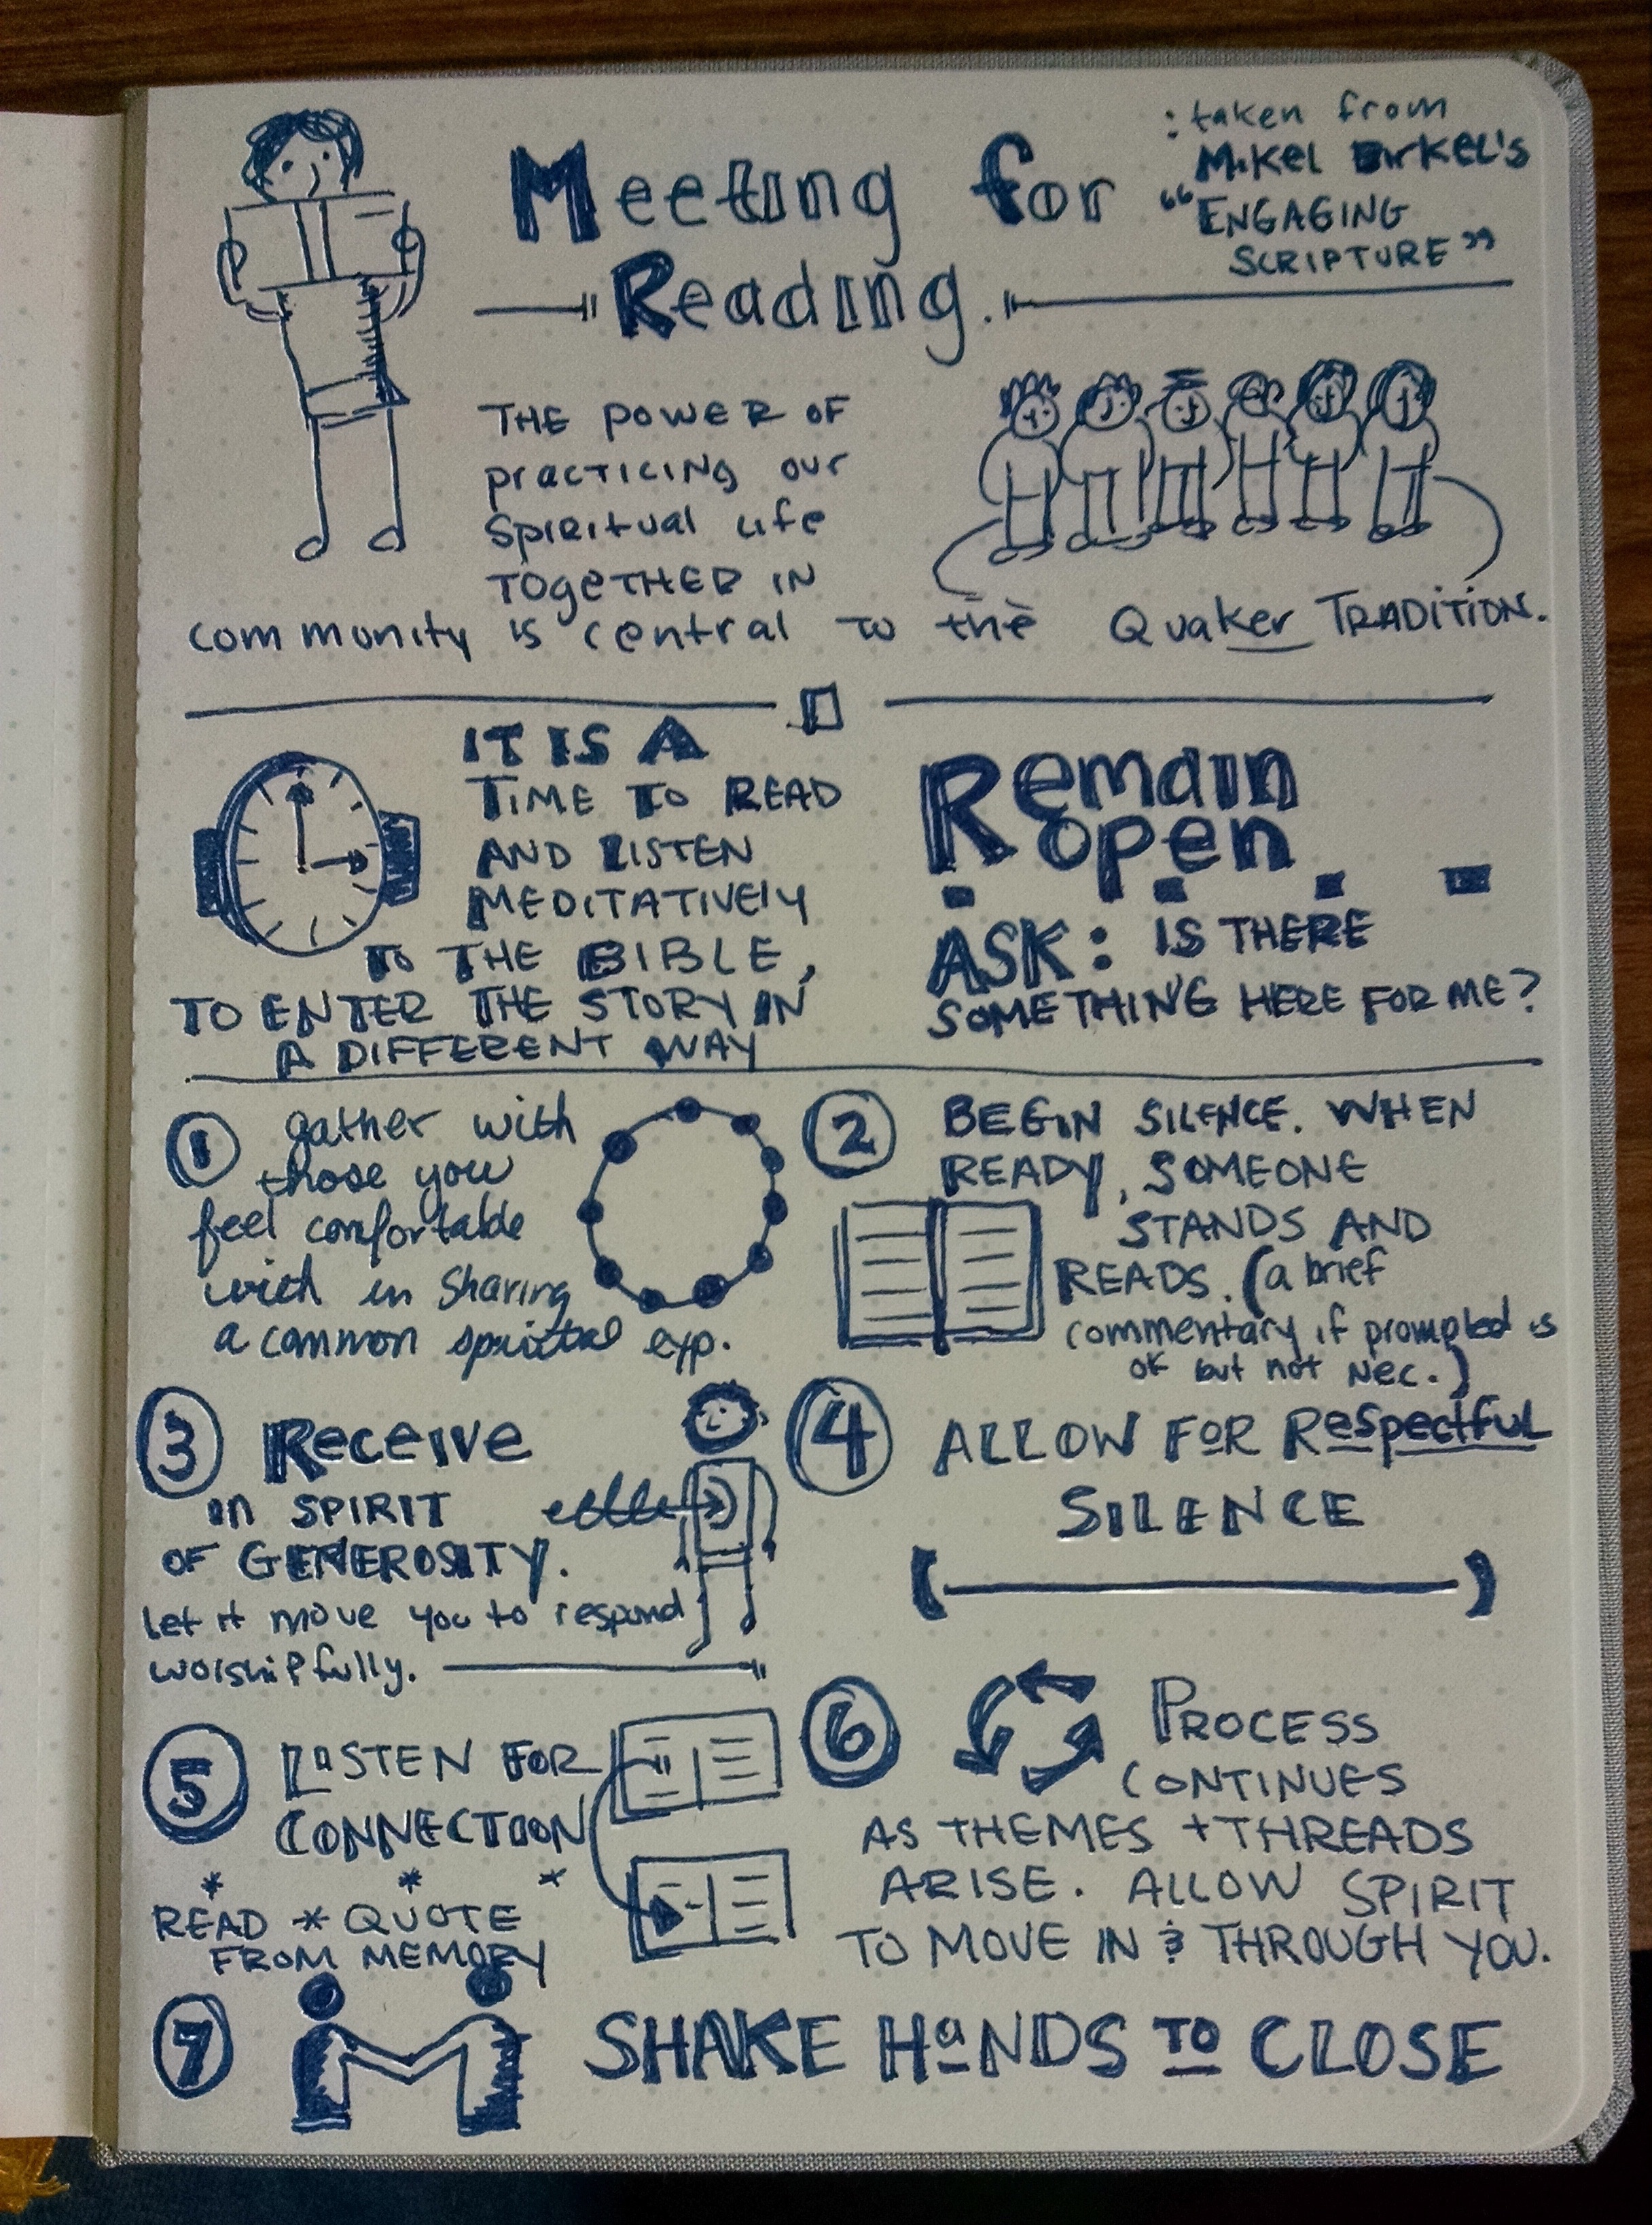 Meeting for
Reading.
: taken from
Mikel Birkel's
"ENGAGING
SCRIPTURE"
THE POWER OF
practicing our
spiritual life
TOgeTHER IN
community is central to the Quaker TRADITION.
IT IS A
TIME TO READ
AND LISTEN
MEDITATIVELY
TO THE BIBLE,
TO ENTER THE STORY IN
A DIFFERENT WAY
Remain
open
ASK: IS THERE
SOMETHING HERE FOR ME?
1 gather with
those you
feel comfortable
with in Sharing
a common spiritual exp.
2 BEGIN SILENCE. WHEN
READY, SOMEONE
STANDS AND
READS. (a brief
commentary if prompted is
ok but not nec.)
3 Receive
in SPIRIT
OF GENEROSITY.
Let it move you to respond
worshipfully.
4 ALLOW FOR Respectful
SILENCE
5 LISTEN FOR
CONNECTION
* * *
READ * QUOTE
FROM MEMORY
6 PROCESS
CONTINUES
AS THEMES + THREADS
ARISE. ALLOW SPIRIT
TO MOVE IN & THROUGH YOU.
7 SHAKE HaNDS TO CLOSE